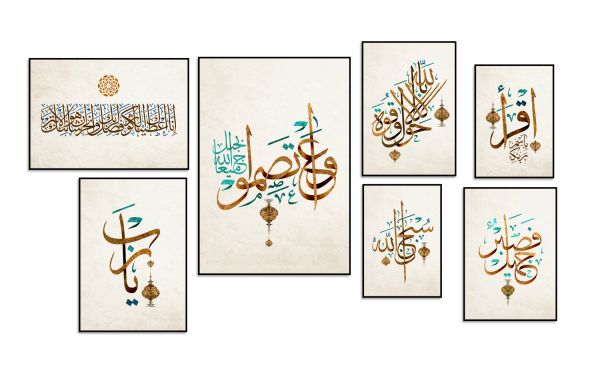 اقرأ
باسم
ربك
لا حول ولا قوة إلا بالله
واعتصموا
بحبل
الله
جميعا
إنا أعطيناك الكوثر فصل لربك وانحر إن شانئك هو الأبتر
فصبر
جميل
سبحان الله
يا رب